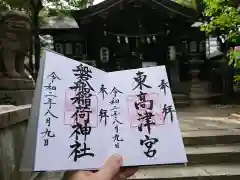 奉拝
東高津宮
令和二年八月九日
奉拝
磐船稲荷神社
令和二年八月九日